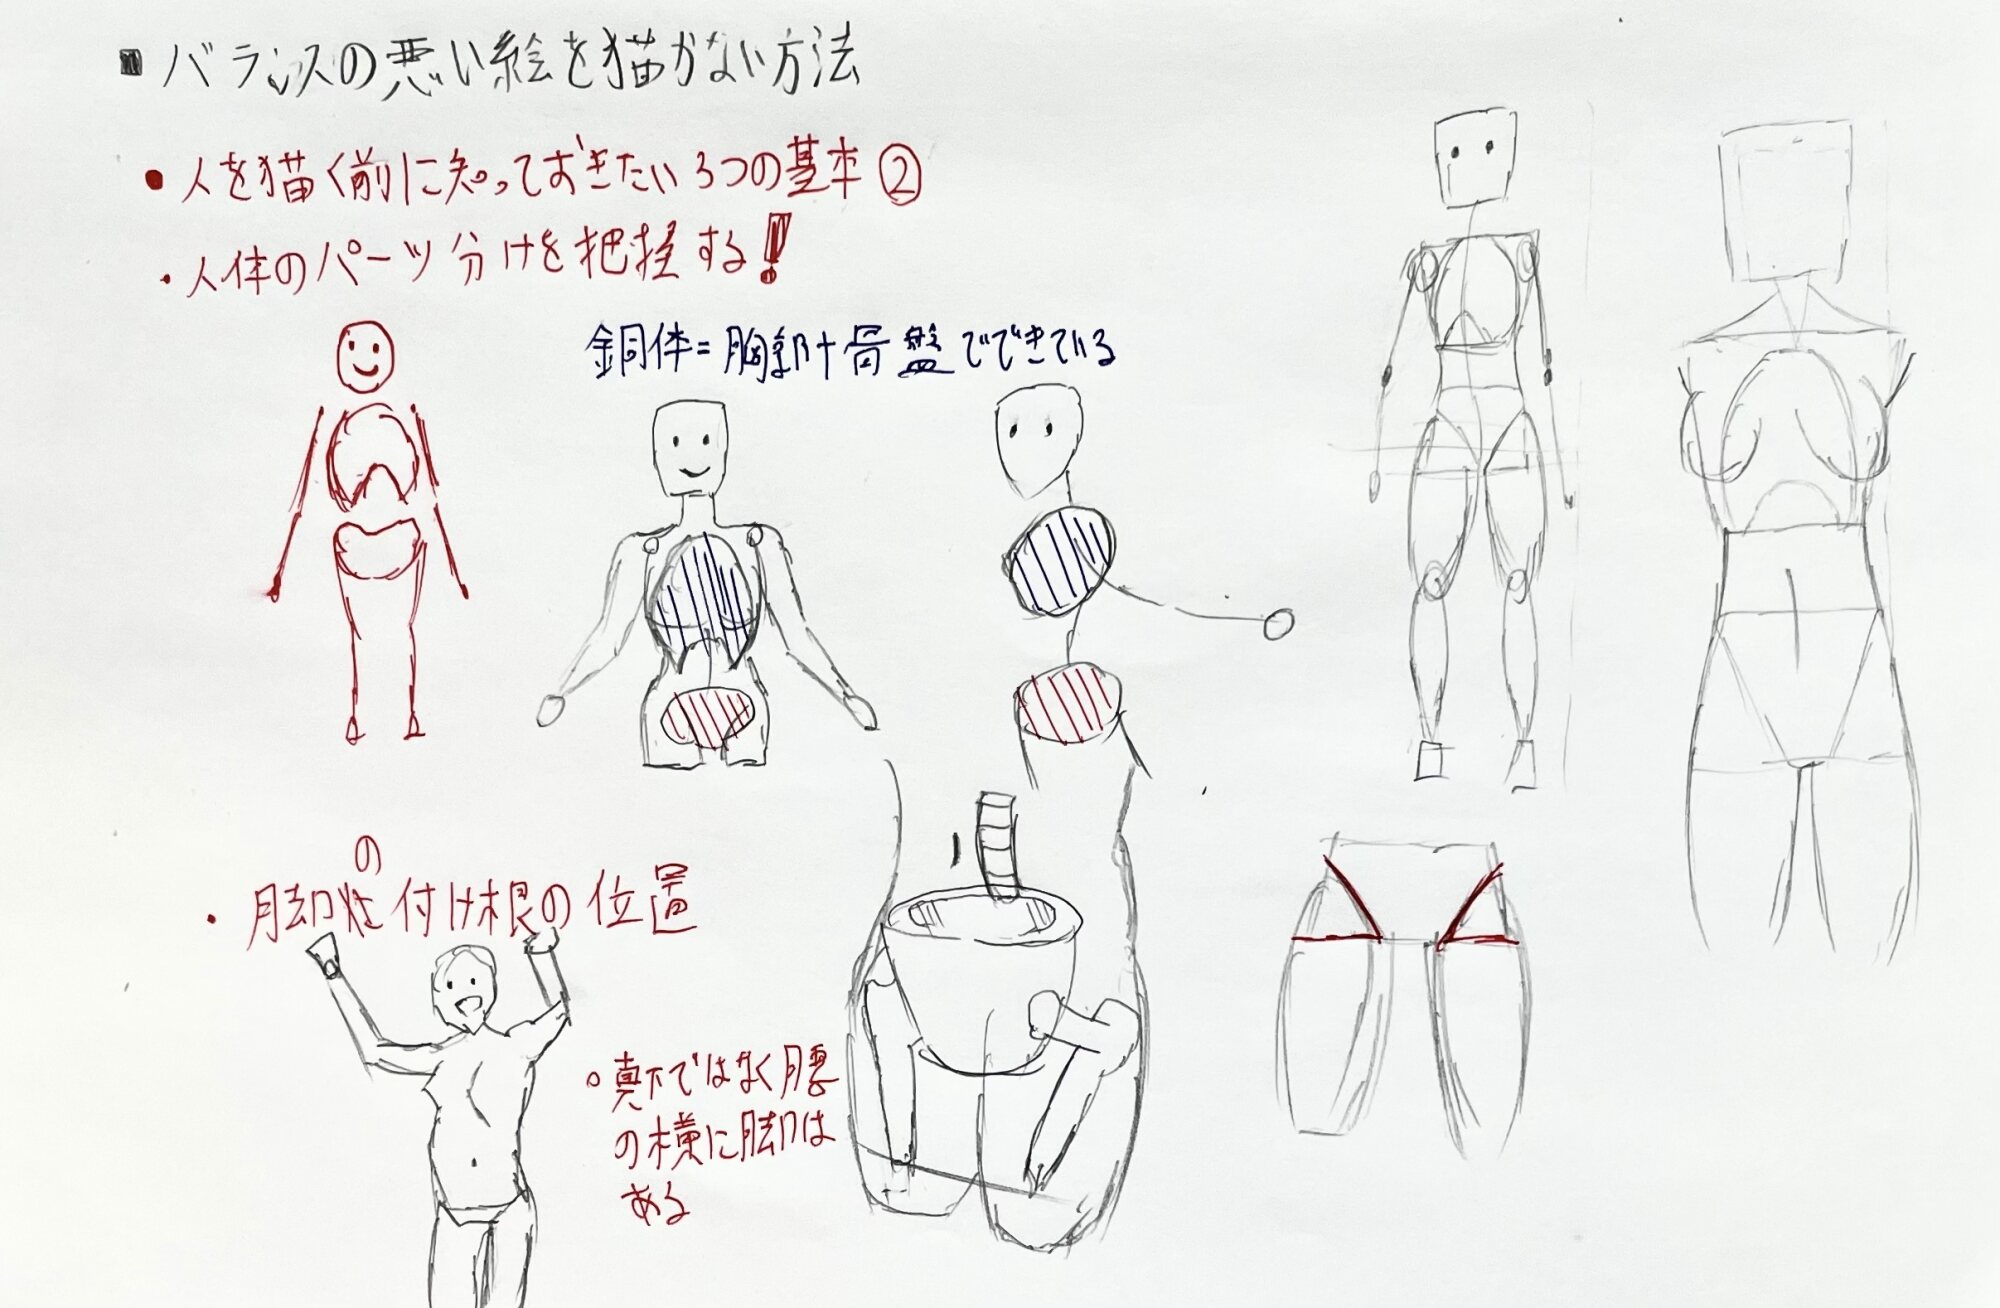 ■バランスの悪い絵を描かない方法
•人を描く前に知っておきたい3つの基本②
・人体のパーツ分けを把握する!
銅体=胸郭+骨盤でできている
の
・脚 付け根の位置
○真下ではなく腰
の横に脚は
ある